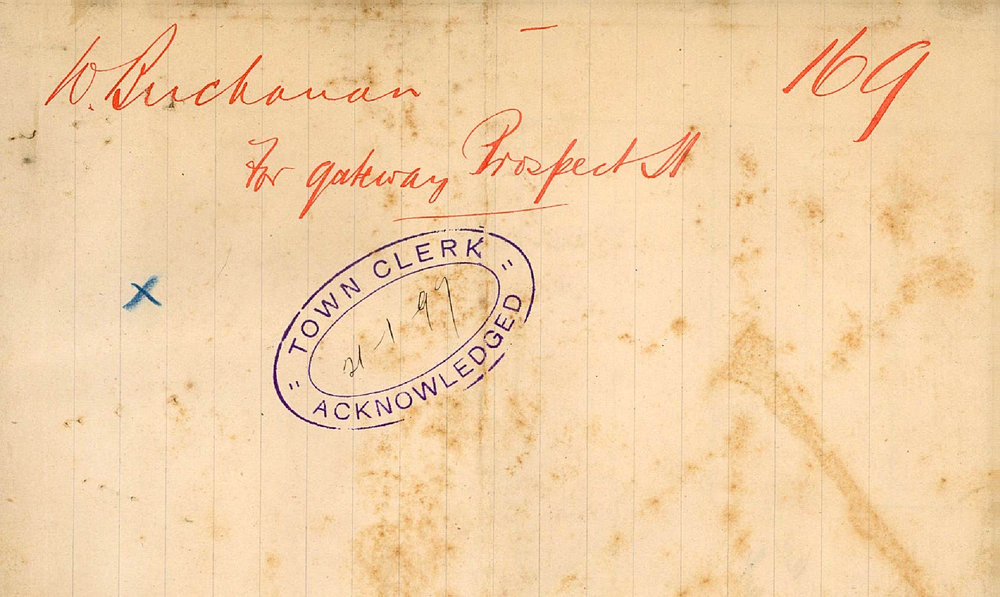 W. Buchanan
169
For gateway Prospect St
TOWN CLERK
21-1 97
ACKNOWLEDGED
x